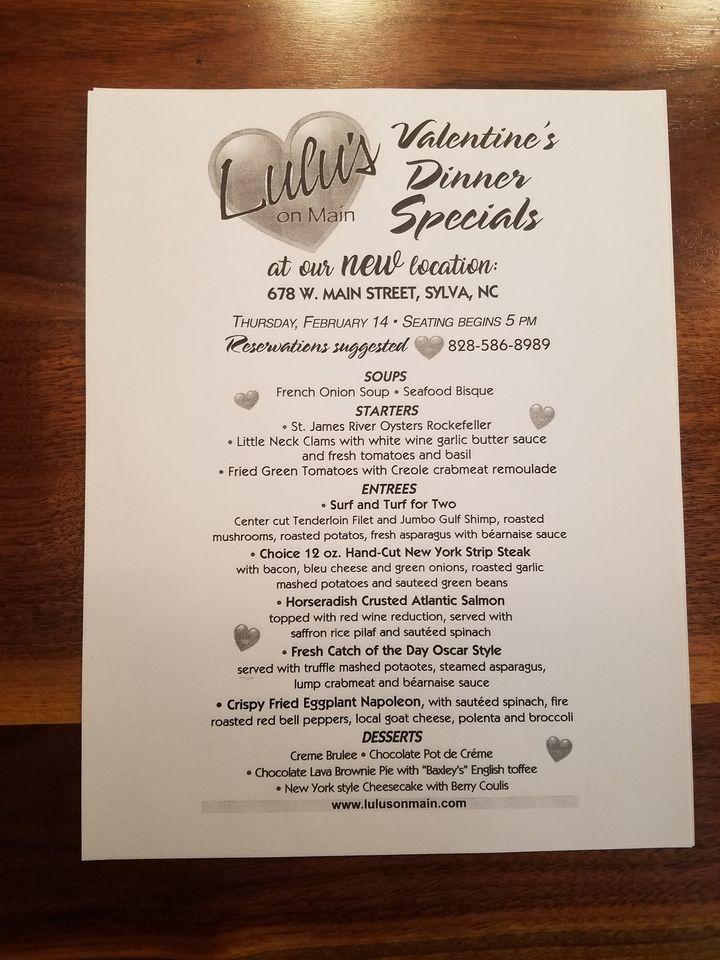 Lulu's
on Main
Valentine's
Dinner
Specials
at our new location:
678 W. MAIN STREET, SYLVA, NC
THURSDAY, FEBRUARY 14 • SEATING BEGINS 5 PM
Reservations suggested 828-586-8989
SOUPS
French Onion Soup • Seafood Bisque
STARTERS
• St. James River Oysters Rockefeller
• Little Neck Clams with white wine garlic butter sauce
and fresh tomatoes and basil
• Fried Green Tomatoes with Creole crabmeat remoulade
ENTREES
• Surf and Turf for Two
Center cut Tenderloin Filet and Jumbo Gulf Shimp, roasted
mushrooms, roasted potatos, fresh asparagus with béarnaise sauce
• Choice 12 oz. Hand-Cut New York Strip Steak
with bacon, bleu cheese and green onions, roasted garlic
mashed potatoes and sauteed green beans
• Horseradish Crusted Atlantic Salmon
topped with red wine reduction, served with
saffron rice pilaf and sautéed spinach
• Fresh Catch of the Day Oscar Style
served with truffle mashed potaotes, steamed asparagus,
lump crabmeat and béarnaise sauce
• Crispy Fried Eggplant Napoleon, with sautéed spinach, fire
roasted red bell peppers, local goat cheese, polenta and broccoli
DESSERTS
Creme Brulee • Chocolate Pot de Créme
• Chocolate Lava Brownie Pie with "Baxley's" English toffee
• New York style Cheesecake with Berry Coulis
www.lulusonmain.com